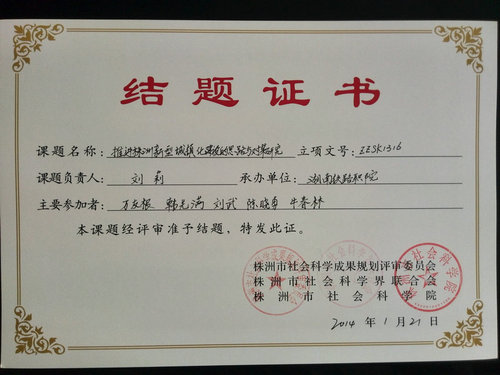 结题证书
课题名称：推进株洲新型城镇化建设的思路与对策研究 立项文号：ZZSK1316
课题负责人：刘莉 承办单位：湖南铁路职院
主要参加者：万友根 韩先满 刘武 陈晓勇 牛春林
本课题经评审准予结题，特发此证。
株洲市社会科学成果规划评审委员会
株洲市社会科学界联合会
株洲市社会科学院
2014 年 1 月 21 日